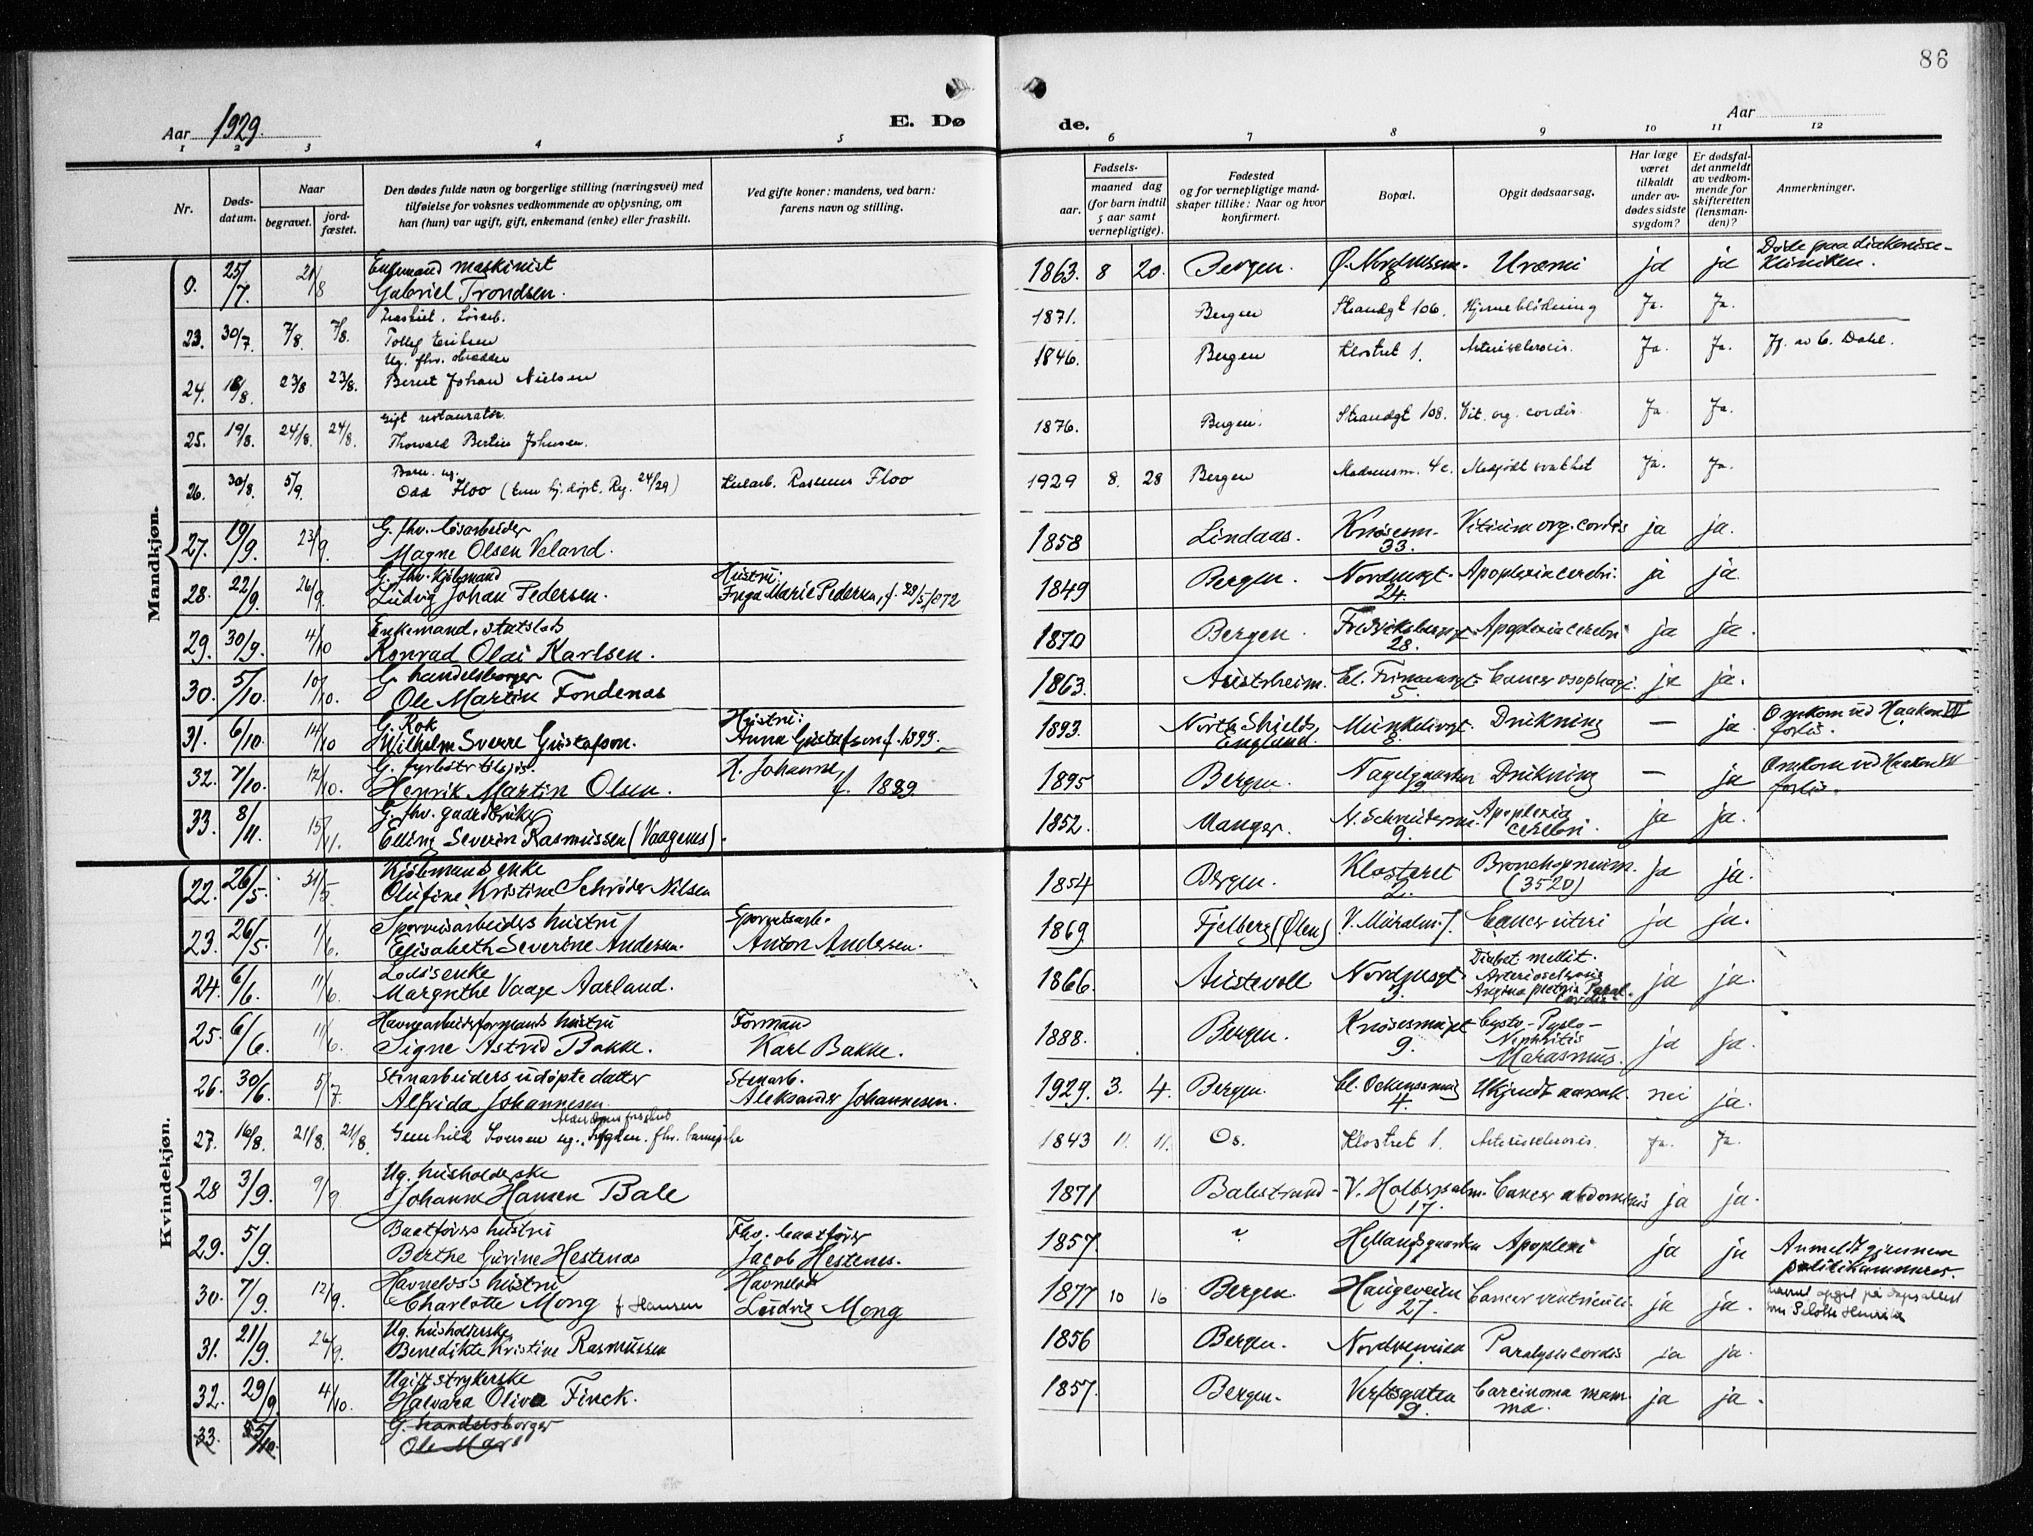 86
Aar 1929.
E. Dø
de.
Aar
1 2 3 4 5 6 7 8 9 10 11 12
Nr.
Døds-
datum.
Naar
begravet.
jord-
fæstet.
Den dødes fulde navn og borgerlige stilling (næringsvei) med
tilføielse for voksnes vedkommende av oplysning, om
han (hun) var ugift, gift, enkemand (enke) eller fraskilt.
Ved gifte koner: mandens, ved barn:
farens navn og stilling.
Fødsels-
aar.
maaned dag
(for barn indtil
5 aar samt
vernepligtige).
Fødested
og for vernepligtige mand-
skaper tillike: Naar og hvor
konfirmert.
Bopæl.
Opgit dødsaarsag.
Har læge
været
tilkaldt
under av-
dødes sidste
sygdom?
Er dødsfal-
det anmeldt
av vedkom-
mende for
skifteretten
(lensman-
den)?
Anmerkninger.
Mandkjøn.
Enkemand maskinist Døde paa diakonisse-
0. 25/7. 21/8 Gabriel Trondsen. 1863. 8 20. Bergen. Uræmi ja ja Kliniken.
23. 30/7 7/8. 7/8. Tollef Eriksen 1871. Bergen Strandgt 106. Hjerneblødning Ja. Ja.
Ug. fhv.
24. 18/8. 23/8 23/8. Bernt Johan Nielsen 1846. Bergen Klostret 1. Arteriosclerosis. Ja. Ja. Dahl.
Gift restauratør.
25. 19/8. 24/8. 24/8. Thorvald Bertin Johnsen. 1876. Bergen. Strandgt 108. Vit. org. cordis. Ja. Ja.
Barn. ug.
26. 30/8. 5/9. Odd Floo (Reg. 24/29) Rasmus Floo 1929 8. 28 Bergen 4c. Medfødt svakhet Ja. Ja.
G. fhv. løsarbeider
27. 19/9. 23/9. Magne Olsen Veland. 1858 Lindaas. Knøsesm. 33. Vitium org. cordis ja ja.
G. fhv. kjøbmand Hustru:
28. 22/9. 26/9. Ludvig Johan Pedersen. Inga Marie Pedersen, f. 28/5 1872 1849 Bergen. Nordnesgt. 24. Apoplexia cerebri. ja ja.
Enkemand, statslods
29. 30/9. 4/10 Konrad Olai Karlsen. 1870 Bergen. 28. Apoplexia cerebri ja ja.
G. handelsborger
30. 5/10. 10/10. Ole Martin Fondenas 1863. Austrheim. 5. Cancer øsophagi. ja ja.
G. Kok Hustru:
31. 6/10. 14/10 Wilhelm Sverre Gustafson. Anna Gustafson f. 1899. 1893. North Shields England. Munkelivgt. 8. Drukning — ja Omkom ved Haakon VII forlis.
G.
32. 7/10. 12/10. Henrik Martin Olsen. H. Johanne, f. 1889. 1895 Bergen. 9. Drukning — ja Omkom ved Haakon VII forlis.
G. fhv. gaardbruker
33. 8/11. 15/11. Elling Severin Rasmussen (Vaagenes). 1852. Manger. 9. Apoplexia cerebri. ja ja.
Kvindekjøn.
Kjøbmands enke
22. 26/5. 31/5. Olufine Kristine Schrøder Nilsen 1854 Bergen. Klosteret 2. Bronchopneum. (3520) ja ja.
Sporveisarbeiders hustru Sporveisarb.
23. 26/5 1/6. Elisabeth Severine Andersen. Anton Andersen. 1869. Fjelberg (Ølen) Cancer uteri ja ja.
Lods's enke
24. 6/6. 11/6. Margrethe Vaage Aarland. 1866. Austevoll Nordnesgt 3. Diabet mellit. Arteriosclerosis Angina pectoris ja ja.
Havnearbeidsformands hustru Formand
25. 6/6. 11/6. Signe Astrid Bakke. Karl Bakke. 1888. Bergen. Knøsesmuget 9. Cysto-Pyelo-Nephritis Marasmus. ja ja.
Stenarbeiders udøpte datter Stenarb.
26. 30/6. 5/7. Alfrida Johannesen. Aleksander Johannesen. 1929. 3. 4. Bergen. 4. Ukjendt aarsak. nei ja.
27. 16/8. 21/8. 21/8. Gunhild Iversen ug. 1843 11. 11. Os. Klostret 1. Arteriosclerosis. Ja. Ja.
Ug. husholderske
28 3/9. 9/9 Johanne Hansen Bale 1871 Balestrand 17. Cancer abdominis ja ja.
Baatførers hustru Fhv. baatfører
29. 5/9. Berthe Gurine Hestenas Jacob Hestenes. 1857. Hellandsgaarden Apoplexi ja ja Anmeldt gjennem politikammeret.
Havnelods's hustru Havnelods
30. 7/9. 12/9. Charlotte Mong f Hansen Ludvig Mong 1877 10 16 Bergen. Haugeveien 27. Cancer ventriculi. ja ja.
Ug. husholderske
31. 21/9. 26/9. Benedikte Kristine Rasmussen 1856 Bergen. Nordneveien 1. Paralysis cordis ja ja.
Ugift strykerske
32. 29/9. 4/10. Halvara Oliva Finck. 1857. Bergen. Verftsgaten 9. Carcinoma mamma. ja ja.
G. handelsborger
33. 5/10. Ole Mar